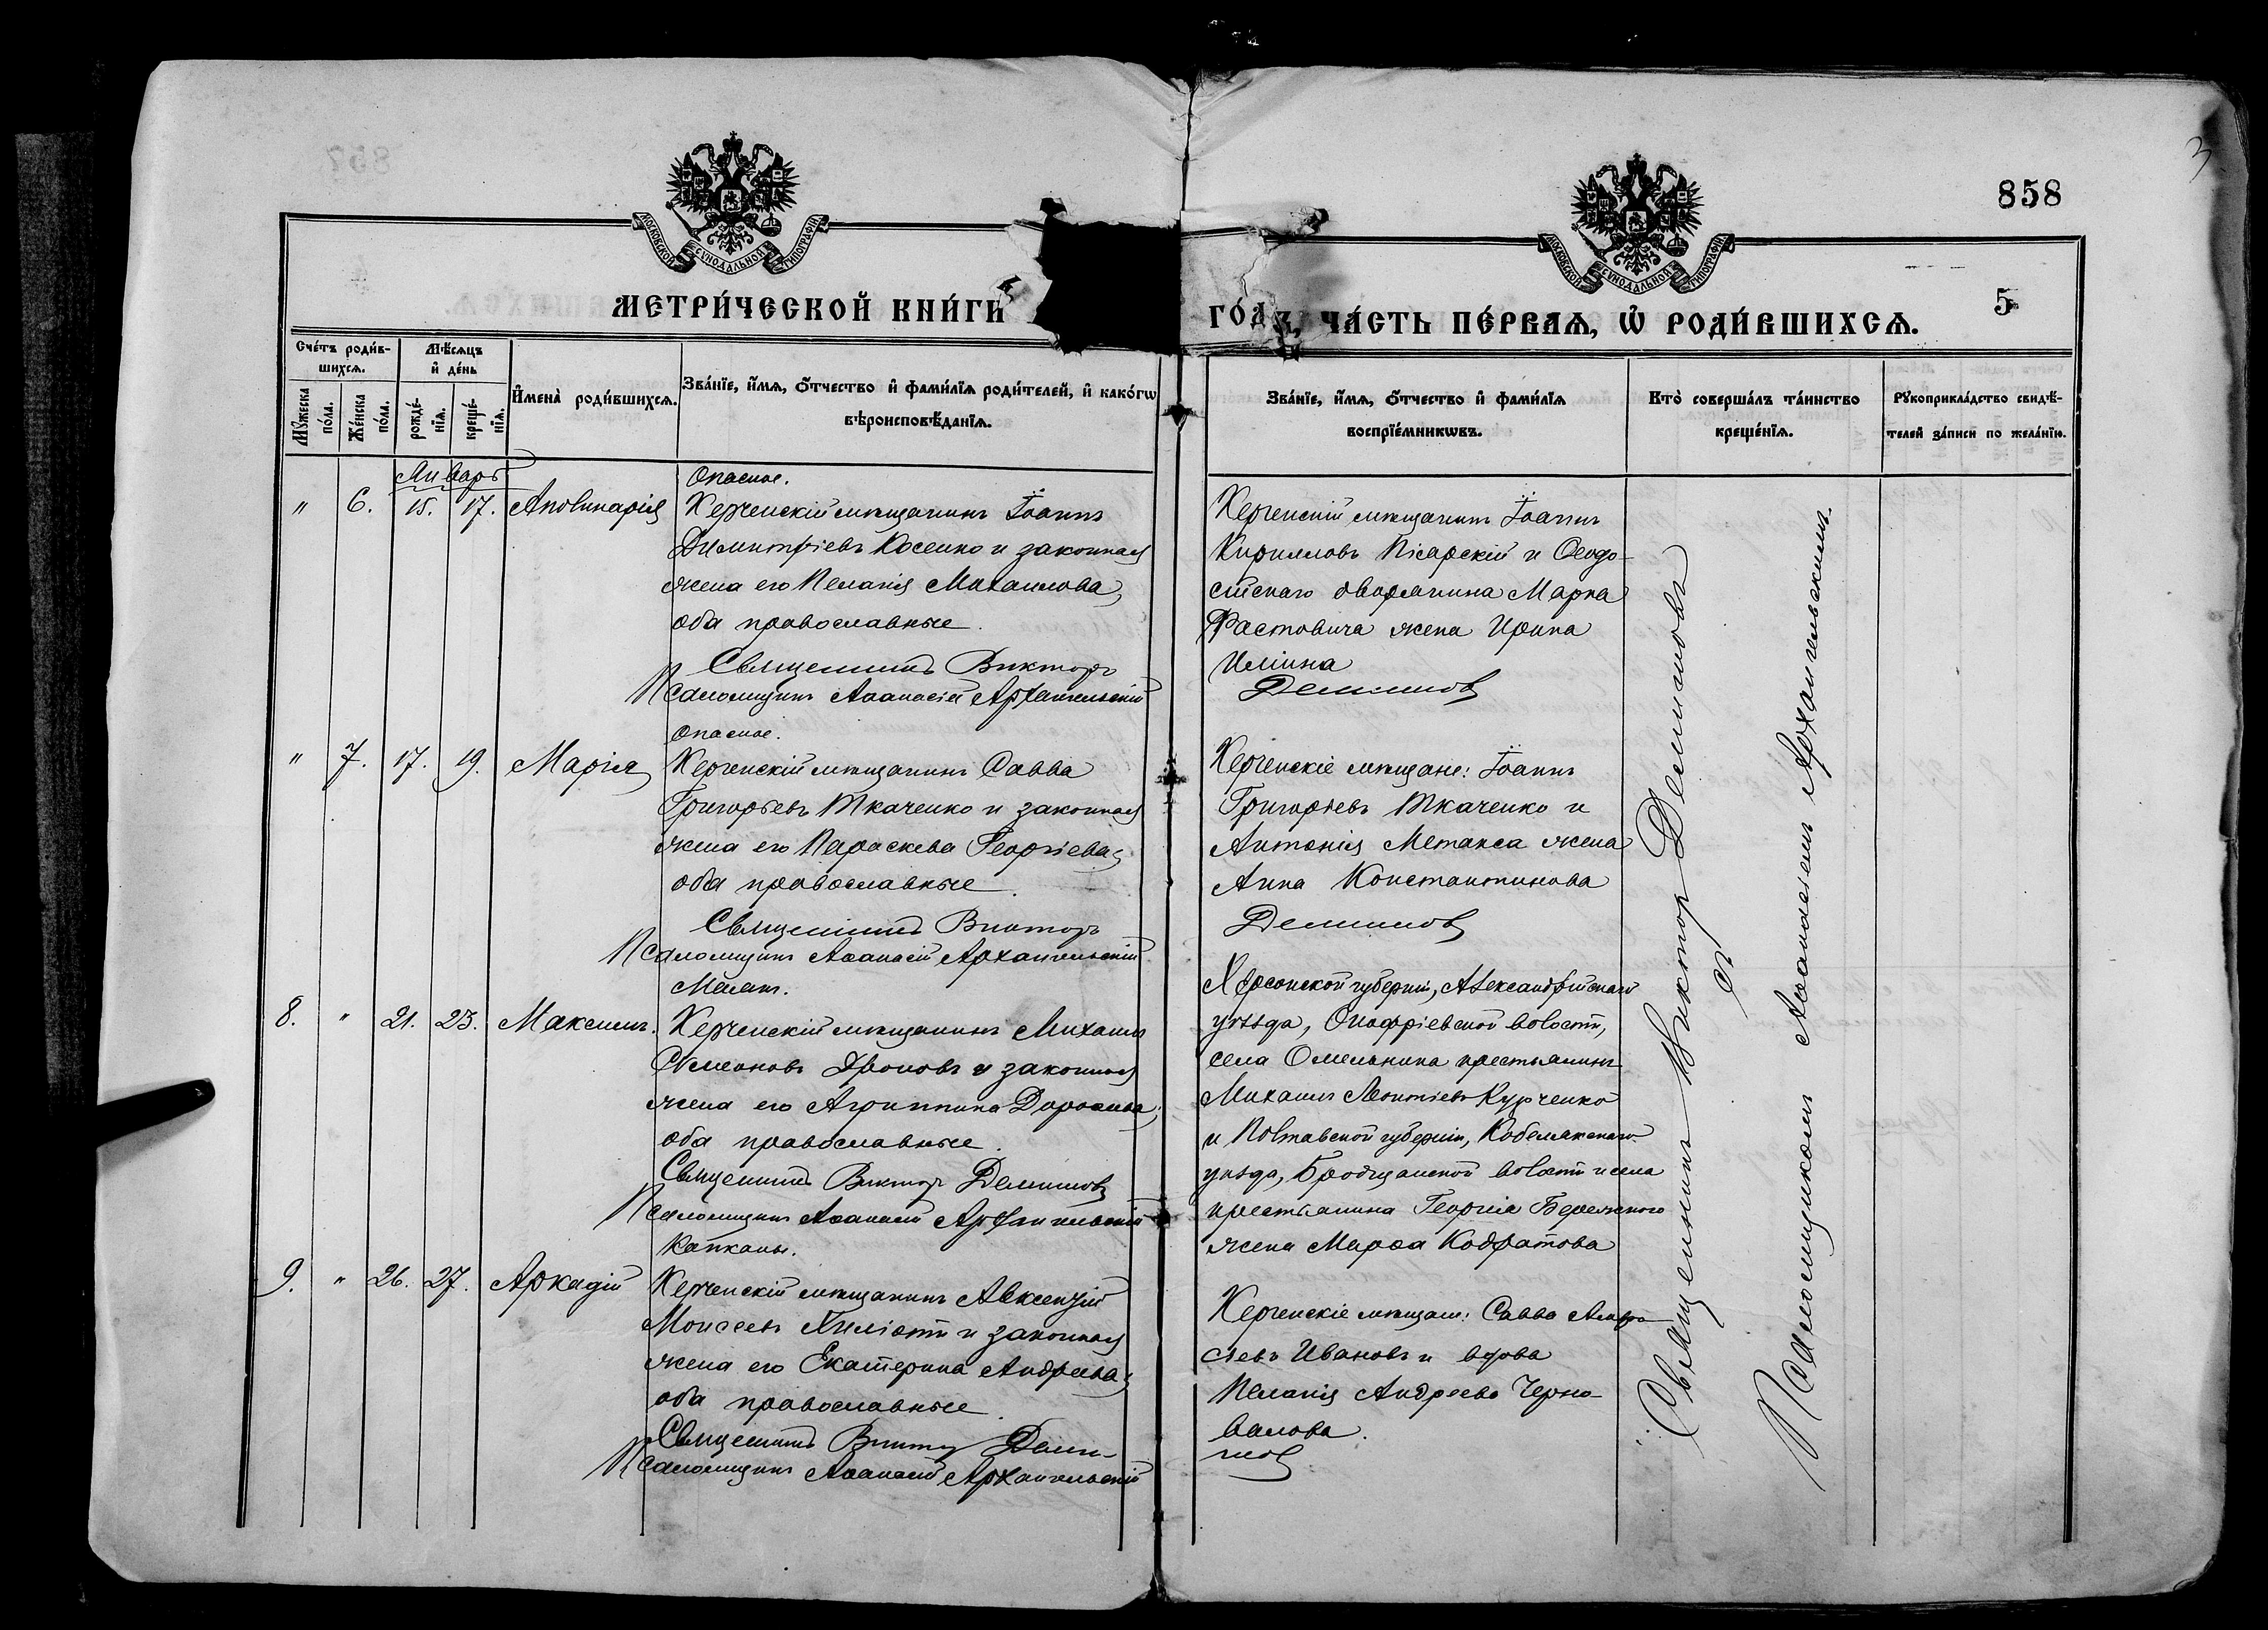 858
3
МОСКОВСКОЙ СѴНОДАЛЬНОЙ ТИПОГРАФІИ
МОСКОВСКОЙ СѴНОДАЛЬНОЙ ТИПОГРАФІИ
МЕТРИ́ЧЕСКОЙ КНИ́ГИ
ГО́ДЪ, ЧА́СТЬ ПЕ́РВАЯ, Ѡ҆ РОДИ́ВШИХСЯ.
5
Сче́тъ роди́в-
шихся.
Мꙋжеска по́ла.
Же́нска по́ла.
Мѣ́сяцъ и҆ де́нь
рожде́-
нїя.
креще́-
нїя.
И҆мена̀ роди́вшихся.
Зва́нїе, и҆́мя, ѻ҆́тчество и҆ фами́лїя роди́телей, и҆ како́гѡ
вѣроисповѣ́данїя.
Зва́нїе, и҆́мя, ѻ҆́тчество и҆ фами́лїя
воспрїе́мникѡвъ.
Кто̀ соверша́лъ та́инство
креще́нїя.
Рꙋкоприкла́дство свидѣ́-
телей за́писи по жела́нїю.
Январь
" 6. 15. 17. Аполинарія
Опасное.
Керченскій мѣщанинъ Іоаннъ
Димитріевъ Косенко и законная
жена его Пелагія Михаилова,
оба православные.
Священникъ Викторъ
Псаломщикъ Аѳанасій Архангельскій
Керченскій мѣщанинъ Іоаннъ
Кирилловъ Пісарскій и Ѳеодо-
сійскаго дворянина Марка
Фастовича жена Ирина
Иліина
Демяновъ
" 7. 17. 19. Марія
Опасное.
Керченскій мѣщанинъ Савва
Григорьевъ Ткаченко и законная
жена его Параскева Георгіева,
оба православные.
Священникъ Викторъ
Псаломщикъ Аѳанасій Архангельскій
Керченскіе мѣщане: Іоаннъ
Григорьевъ Ткаченко и
Антонія Метакса жена
Анна Константинова
Демяновъ
8. " 21. 23. Максимъ.
Маякъ.
Керченскій мѣщанинъ Михаилъ
Симеоновъ и законная
жена его Агриппина Дороѳеева,
оба православные.
Священникъ Викторъ Демяновъ
Псаломщикъ Аѳанасій Архангельскій
Херсонской губерніи, Александрійскаго
уѣзда, Онофріевской волости,
села Омельника крестьянинъ
Михаилъ Леонтіевъ Курченко
и Полтавской губерніи, Кобелякскаго
уѣзда, Бродщанской волости и села
крестьянина Георгія Бережного
жена Марѳа Кодратова
9. " 26. 27. Аркадій
Капканы.
Керченскій мѣщанинъ Авксентій
Моисеевъ и законная
жена его Екатерина Андреева,
оба православные.
Священникъ Викторъ Демя-
Псаломщикъ Аѳанасій Архангельскій
Керченскіе мѣщане: Савва
Ивановъ и вдова
Пелагія Андреева Черно-
валова.
новъ
Священникъ Викторъ Демяновъ
съ
Псаломщикомъ Аѳанасіемъ Архангельскимъ.